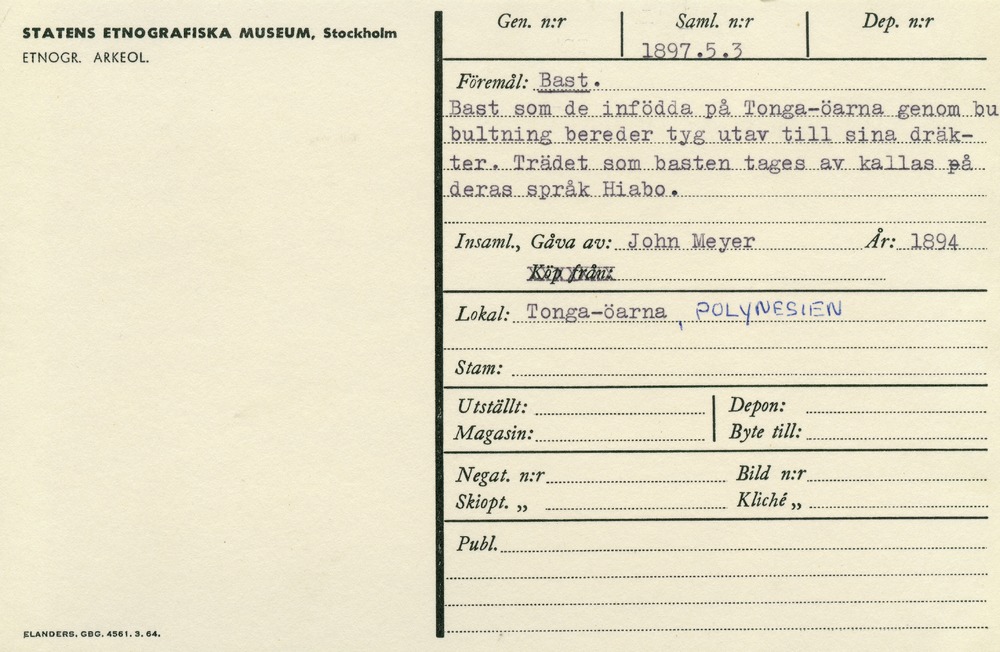 STATENS ETNOGRAFISKA MUSEUM, Stockholm
ETNOGR. ARKEOL.
Gen. n:r Saml. n:r Dep. n:r
1897.5.3
Föremål: Bast.
Bast som de infödda på Tonga-öarna genom bu
bultning bereder tyg utav till sina dräk-
ter. Trädet som basten tages av kallas på
deras språk Hiabo.
Insaml., Gåva av: John Meyer År: 1894
Köp från:
Lokal: Tonga-öarna, POLYNESIEN
Stam:
Utställt: Depon:
Magasin: Byte till:
Negat. n:r Bild n:r
Skiopt. „ Kliché „
Publ.
ELANDERS. GBG. 4561. 3. 64.